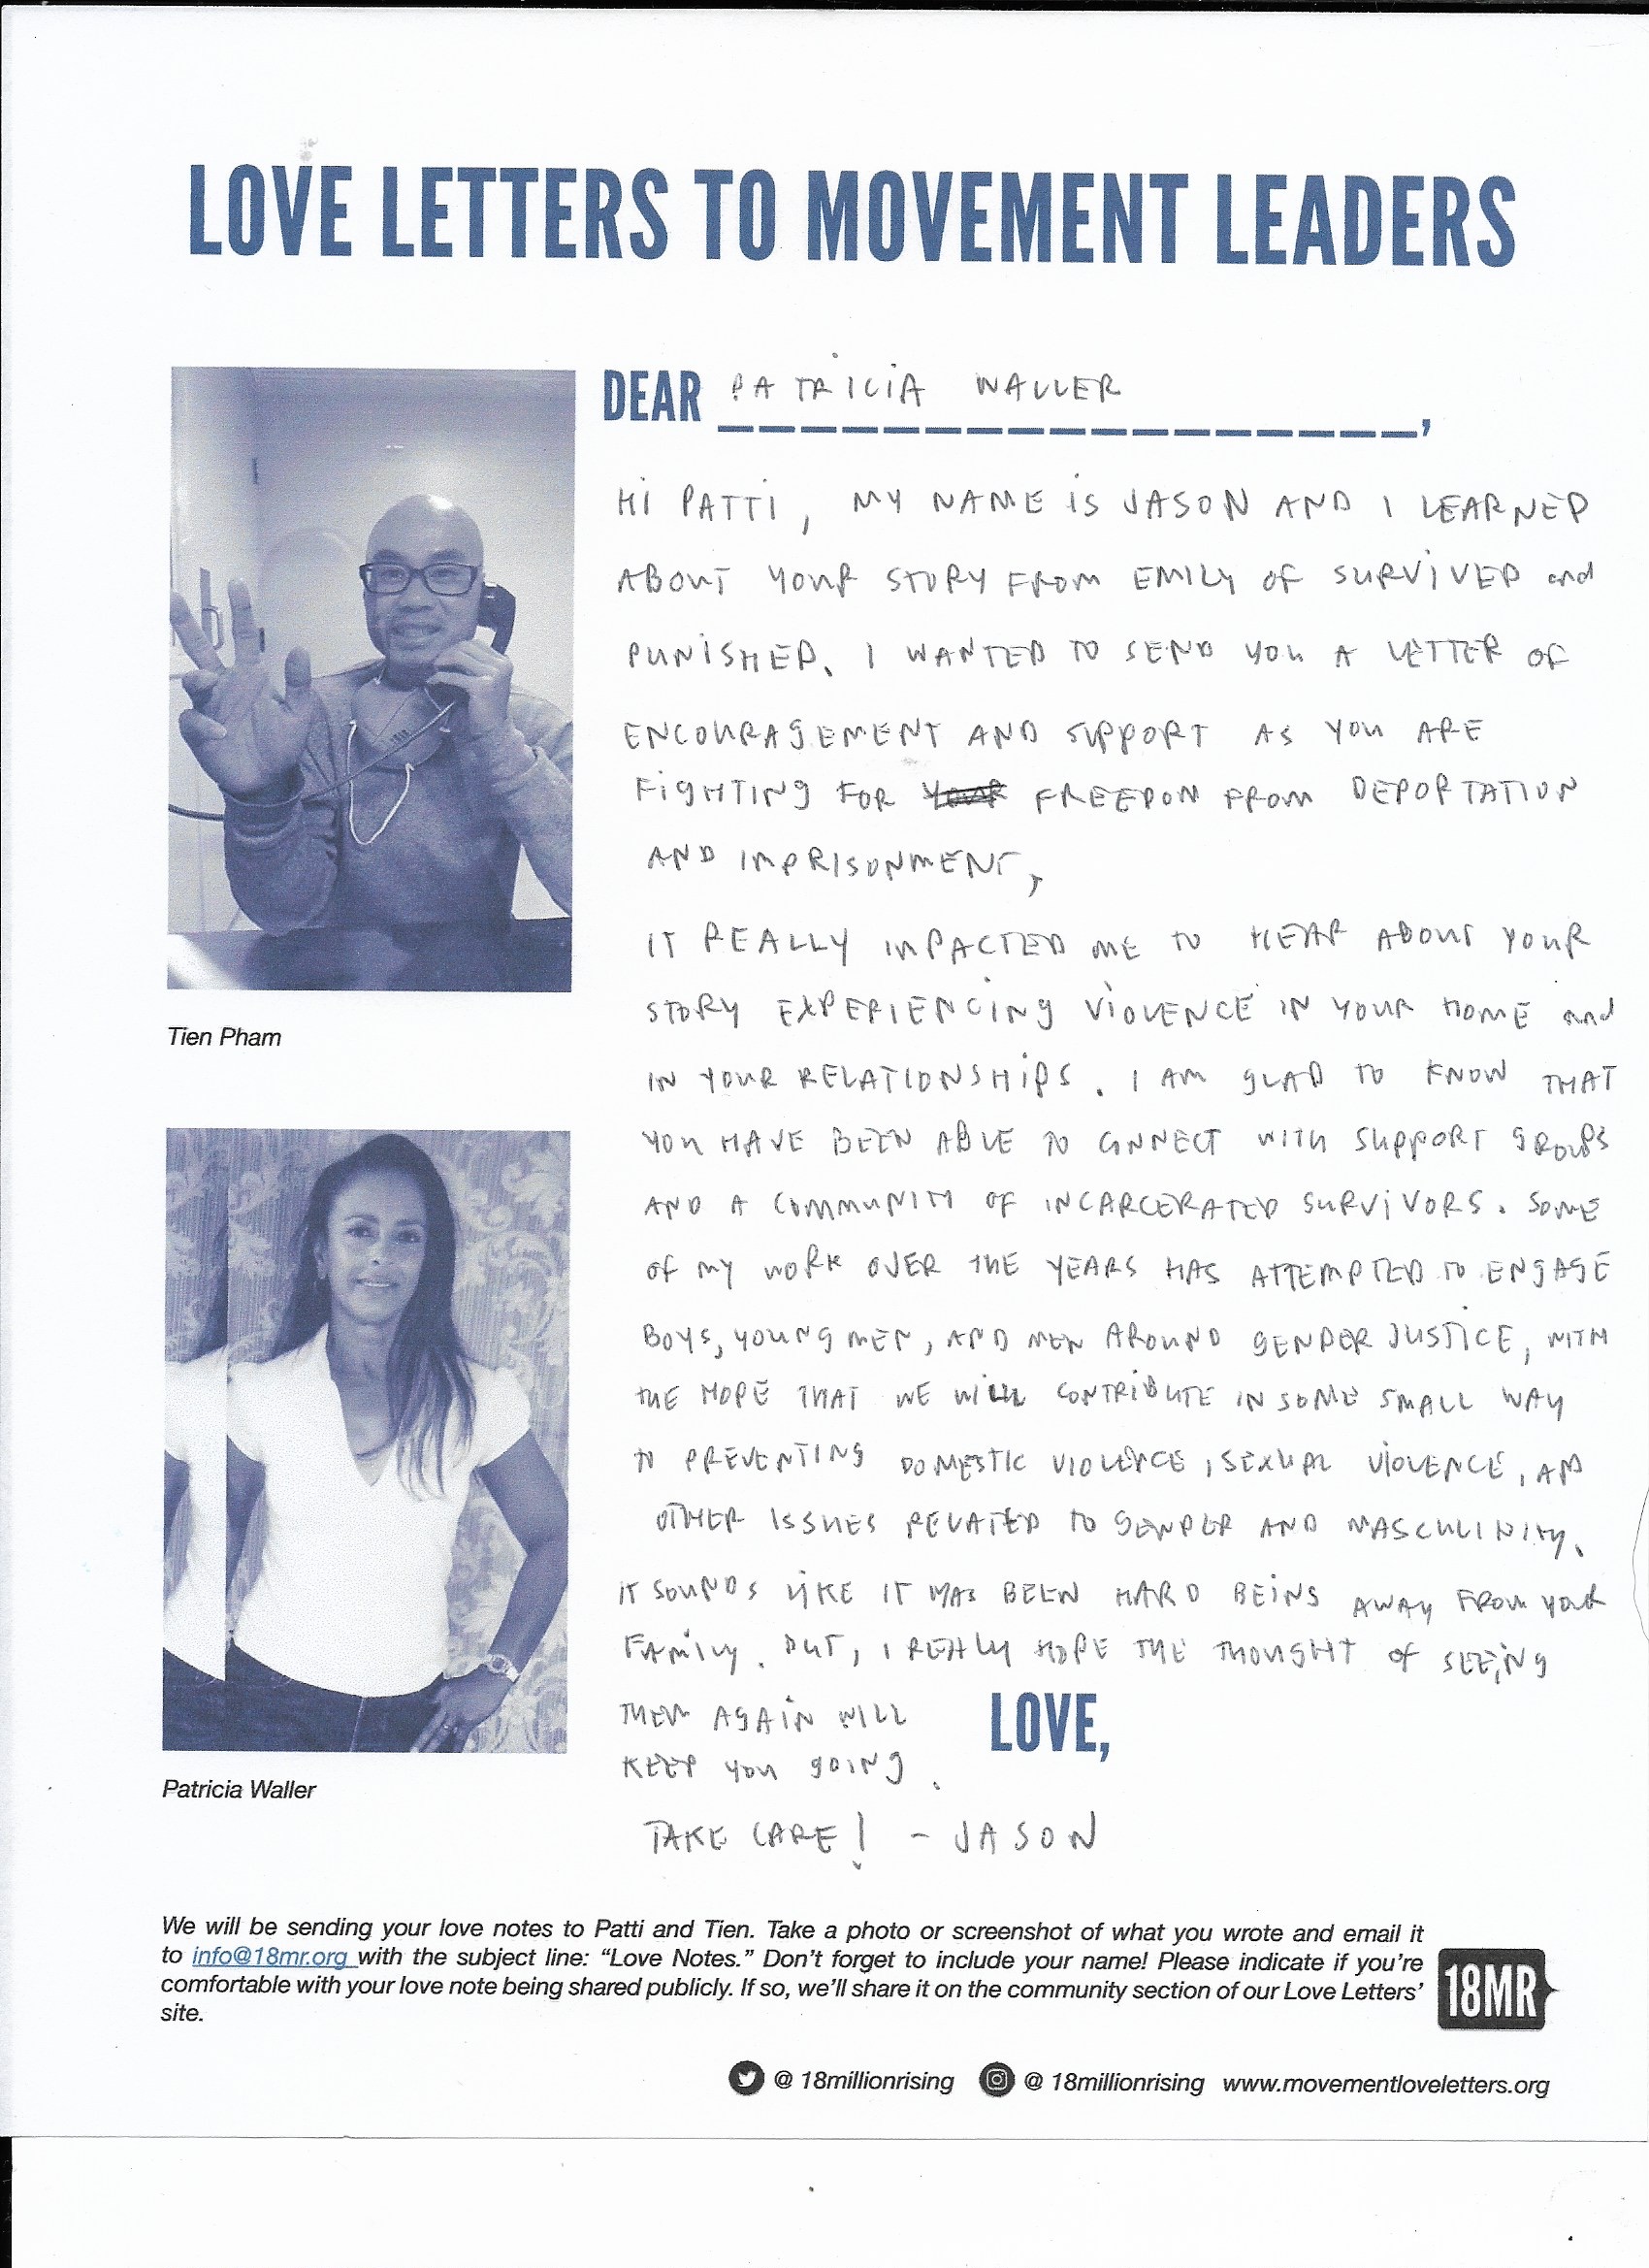 LOVE LETTERS TO MOVEMENT LEADERS
DEAR PATRICIA WALLER,
HI PATTI, MY NAME IS JASON AND I LEARNED
ABOUT YOUR STORY FROM EMILY OF SURVIVED and
PUNISHED. I WANTED TO SEND YOU A LETTER OF
ENCOURAGEMENT AND SUPPORT AS YOU ARE
FIGHTING FOR FREEDOM FROM DEPORTATION
AND IMPRISONMENT,
IT REALLY IMPACTED ME TO HEAR ABOUT YOUR
STORY EXPERIENCING VIOLENCE IN YOUR HOME and
IN YOUR RELATIONSHIPS. I AM GLAD TO KNOW THAT
YOU HAVE BEEN ABLE TO CONNECT WITH SUPPORT GROUPS
AND A COMMUNITY OF INCARCERATED SURVIVORS. SOME
OF MY WORK OVER THE YEARS HAS ATTEMPTED TO ENGAGE
BOYS, YOUNG MEN, AND MEN AROUND GENDER JUSTICE, WITH
THE HOPE THAT WE WILL CONTRIBUTE IN SOME SMALL WAY
TO PREVENTING DOMESTIC VIOLENCE, SEXUAL VIOLENCE, AND
OTHER ISSUES RELATED TO GENDER AND MASCULINITY.
IT SOUNDS LIKE IT HAS BEEN HARD BEING AWAY FROM YOUR
FAMILY. BUT, I REALLY HOPE THE THOUGHT OF SEEING
THEM AGAIN WILL
KEEP YOU GOING.
LOVE,
TAKE CARE! - JASON
Tien Pham
Patricia Waller
We will be sending your love notes to Patti and Tien. Take a photo or screenshot of what you wrote and email it
to info@18mr.org with the subject line: “Love Notes.” Don't forget to include your name! Please indicate if you're
comfortable with your love note being shared publicly. If so, we'll share it on the community section of our Love Letters'
site.
18MR
@ 18millionrising @ 18millionrising www.movementloveletters.org